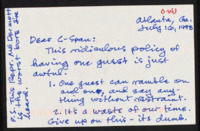 Atlanta, Ga.
July 16, 1998
Dear C-Span:
This ridiculous policy of
having one guest is just
awful.
1. One guest can ramble on
and on, and say any-
thing without restraint.
2. It's a waste of our time.
Give up on this - it's dumb.
P.S. This Repr. McDermott
is the worst bore I've
heard.